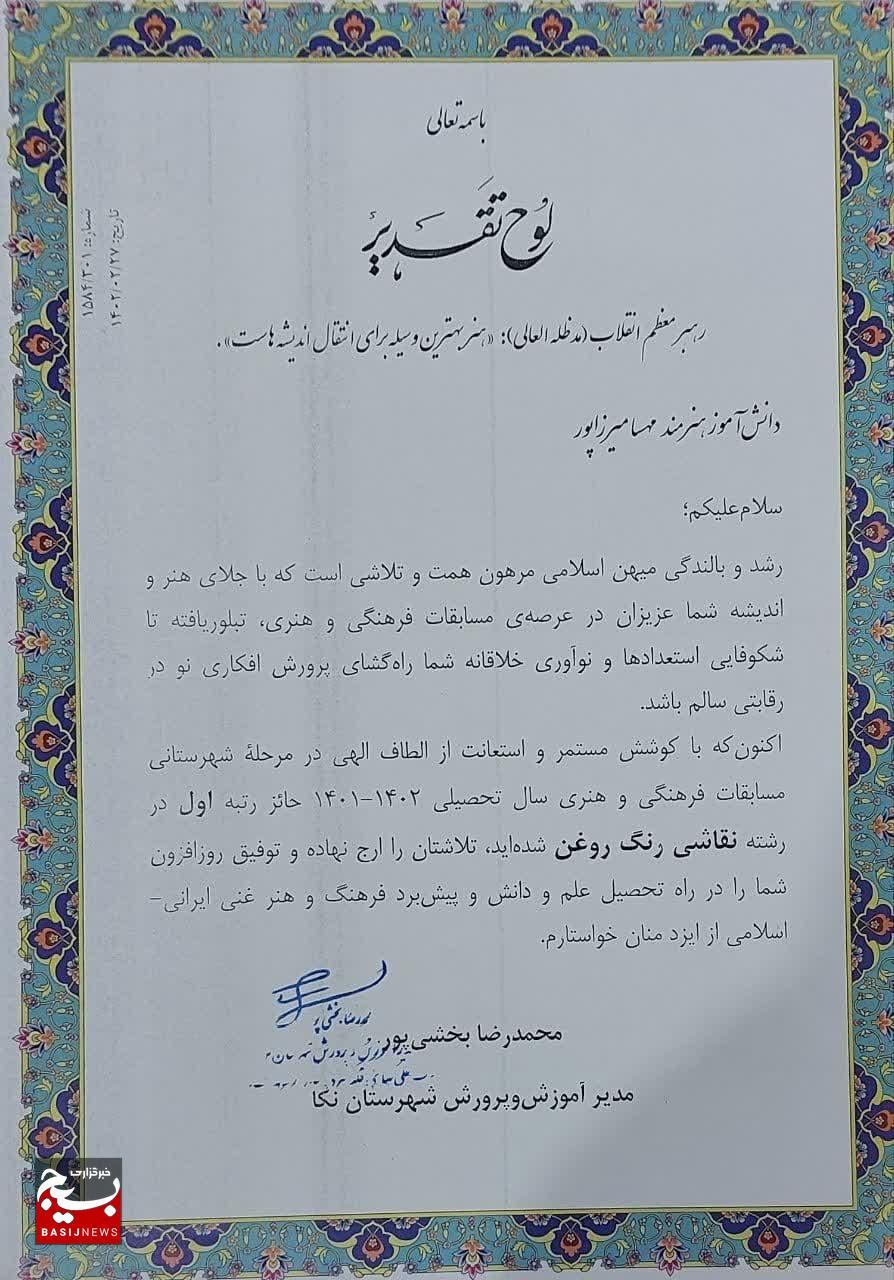 باسمه تعالی
لوح تقدیر
شماره: ۱۵۸۴/۳۰۱
تاریخ: ۱۴۰۲/۰۲/۲۷
رهبر معظم انقلاب (مدظله العالی): «هنر بهترین وسیله برای انتقال اندیشه هاست».
دانش آموز هنرمند مهسا میرزاپور
سلام علیکم؛
رشد و بالندگی میهن اسلامی مرهون همت و تلاشی است که با جلای هنر و
اندیشه شما عزیزان در عرصه‌ی مسابقات فرهنگی و هنری، تبلوریافته تا
شکوفایی استعدادها و نوآوری خلاقانه شما راه‌گشای پرورش افکاری نو در
رقابتی سالم باشد.
اکنون‌که با کوشش مستمر و استعانت از الطاف الهی در مرحلهٔ شهرستانی
مسابقات فرهنگی و هنری سال تحصیلی ۱۴۰۲-۱۴۰۱ حائز رتبه اول در
رشته نقاشی رنگ روغن شده‌اید، تلاشتان را ارج نهاده و توفیق روزافزون
شما را در راه تحصیل علم و دانش و پیش‌برد فرهنگ و هنر غنی ایرانی-
اسلامی از ایزد منان خواستارم.
محمدرضا بخشی پور
محمدرضا بخشی‌پور
مدیر آموزش‌وپرورش شهرستان نکا
خبرگزاری
بسیج
BASIJNEWS